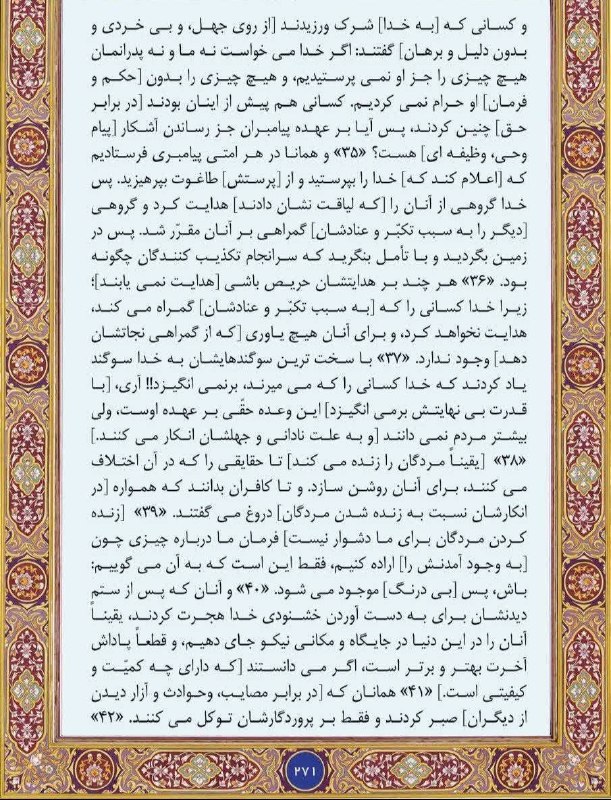 و کسانی که [به خدا] شرک ورزیدند [از روی جهل، و بی خردی و
بدون دلیل و برهان] گفتند: اگر خدا می خواست نه ما و نه پدرانمان
هیچ چیزی را جز او نمی پرستیدیم، و هیچ چیزی را بدون [حکم و
فرمان] او حرام نمی کردیم. کسانی هم پیش از اینان بودند [در برابر
حق] چنین کردند، پس آیا بر عهده پیامبران جز رساندن آشکار [پیام
وحی، وظیفه ای] هست؟ «۳۵» و همانا در هر امتی پیامبری فرستادیم
که [اعلام کند که] خدا را بپرستید و از [پرستش] طاغوت بپرهیزید. پس
خدا گروهی از آنان را [که لیاقت نشان دادند] هدایت کرد و گروهی
[دیگر را به سبب تکبّر و عنادشان] گمراهی بر آنان مقرّر شد. پس در
زمین بگردید و با تأمل بنگرید که سرانجام تکذیب کنندگان چگونه
بود. «۳۶» هر چند بر هدایتشان حریص باشی [هدایت نمی یابند]؛
زیرا خدا کسانی را که [به سبب تکبّر و عنادشان] گمراه می کند،
هدایت نخواهد کرد، و برای آنان هیچ یاوری [که از گمراهی نجاتشان
دهد] وجود ندارد. «۳۷» با سخت ترین سوگندهایشان به خدا سوگند
یاد کردند که خدا کسانی را که می میرند، برنمی انگیزد!! آری، [با
قدرت بی نهایتش برمی انگیزد] این وعده حقّی بر عهده اوست، ولی
بیشتر مردم نمی دانند [و به علت نادانی و جهلشان انکار می کنند.]
«۳۸» [یقیناً مردگان را زنده می کند] تا حقایقی را که در آن اختلاف
می کنند، برای آنان روشن سازد. و تا کافران بدانند که همواره [در
انکارشان نسبت به زنده شدن مردگان] دروغ می گفتند. «۳۹» [زنده
کردن مردگان برای ما دشوار نیست] فرمان ما درباره چیزی چون
[به وجود آمدنش را] اراده کنیم، فقط این است که به آن می گوییم:
باش، پس [بی درنگ] موجود می شود. «۴۰» و آنان که پس از ستم
دیدنشان برای به دست آوردن خشنودی خدا هجرت کردند، یقیناً
آنان را در این دنیا در جایگاه و مکانی نیکو جای دهیم، و قطعاً پاداش
آخرت بهتر و برتر است، اگر می دانستند [که دارای چه کمیّت و
کیفیتی است.] «۴۱» همانان که [در برابر مصایب، وحوادث و آزار دیدن
از دیگران] صبر کردند و فقط بر پروردگارشان توکل می کنند. «۴۲»
۲۷۱